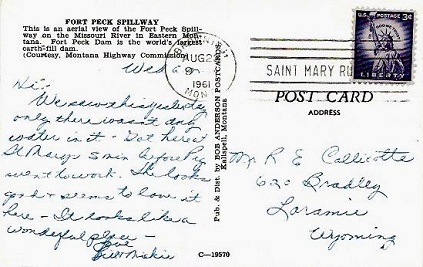 FORT PECK SPILLWAY
This is an aerial view of the Fort Peck Spill-
way on the Missouri River in Eastern Mon-
tana. Fort Peck Dam is the world's largest
earth-fill dam.
(Courtesy, Montana Highway Commission)
Wed
Hi -
We saw this yesterday
only there wasn't any
water in it - Got here
St Marys 5 min before Peg
went to work. She looks
good & seems to love it
here - It looks like a
wonderful place -
Love
Pub. & Dist. by BOB ANDERSON POSTCARDS
Kalispell, Montana
C-19570
AUG
1961
MON
SAINT MARY
U.S. POSTAGE 3¢
IN GOD WE TRUST
LIBERTY
POST CARD
ADDRESS
Mr R E Callicotte
620 Bradley
Laramie
Wyoming